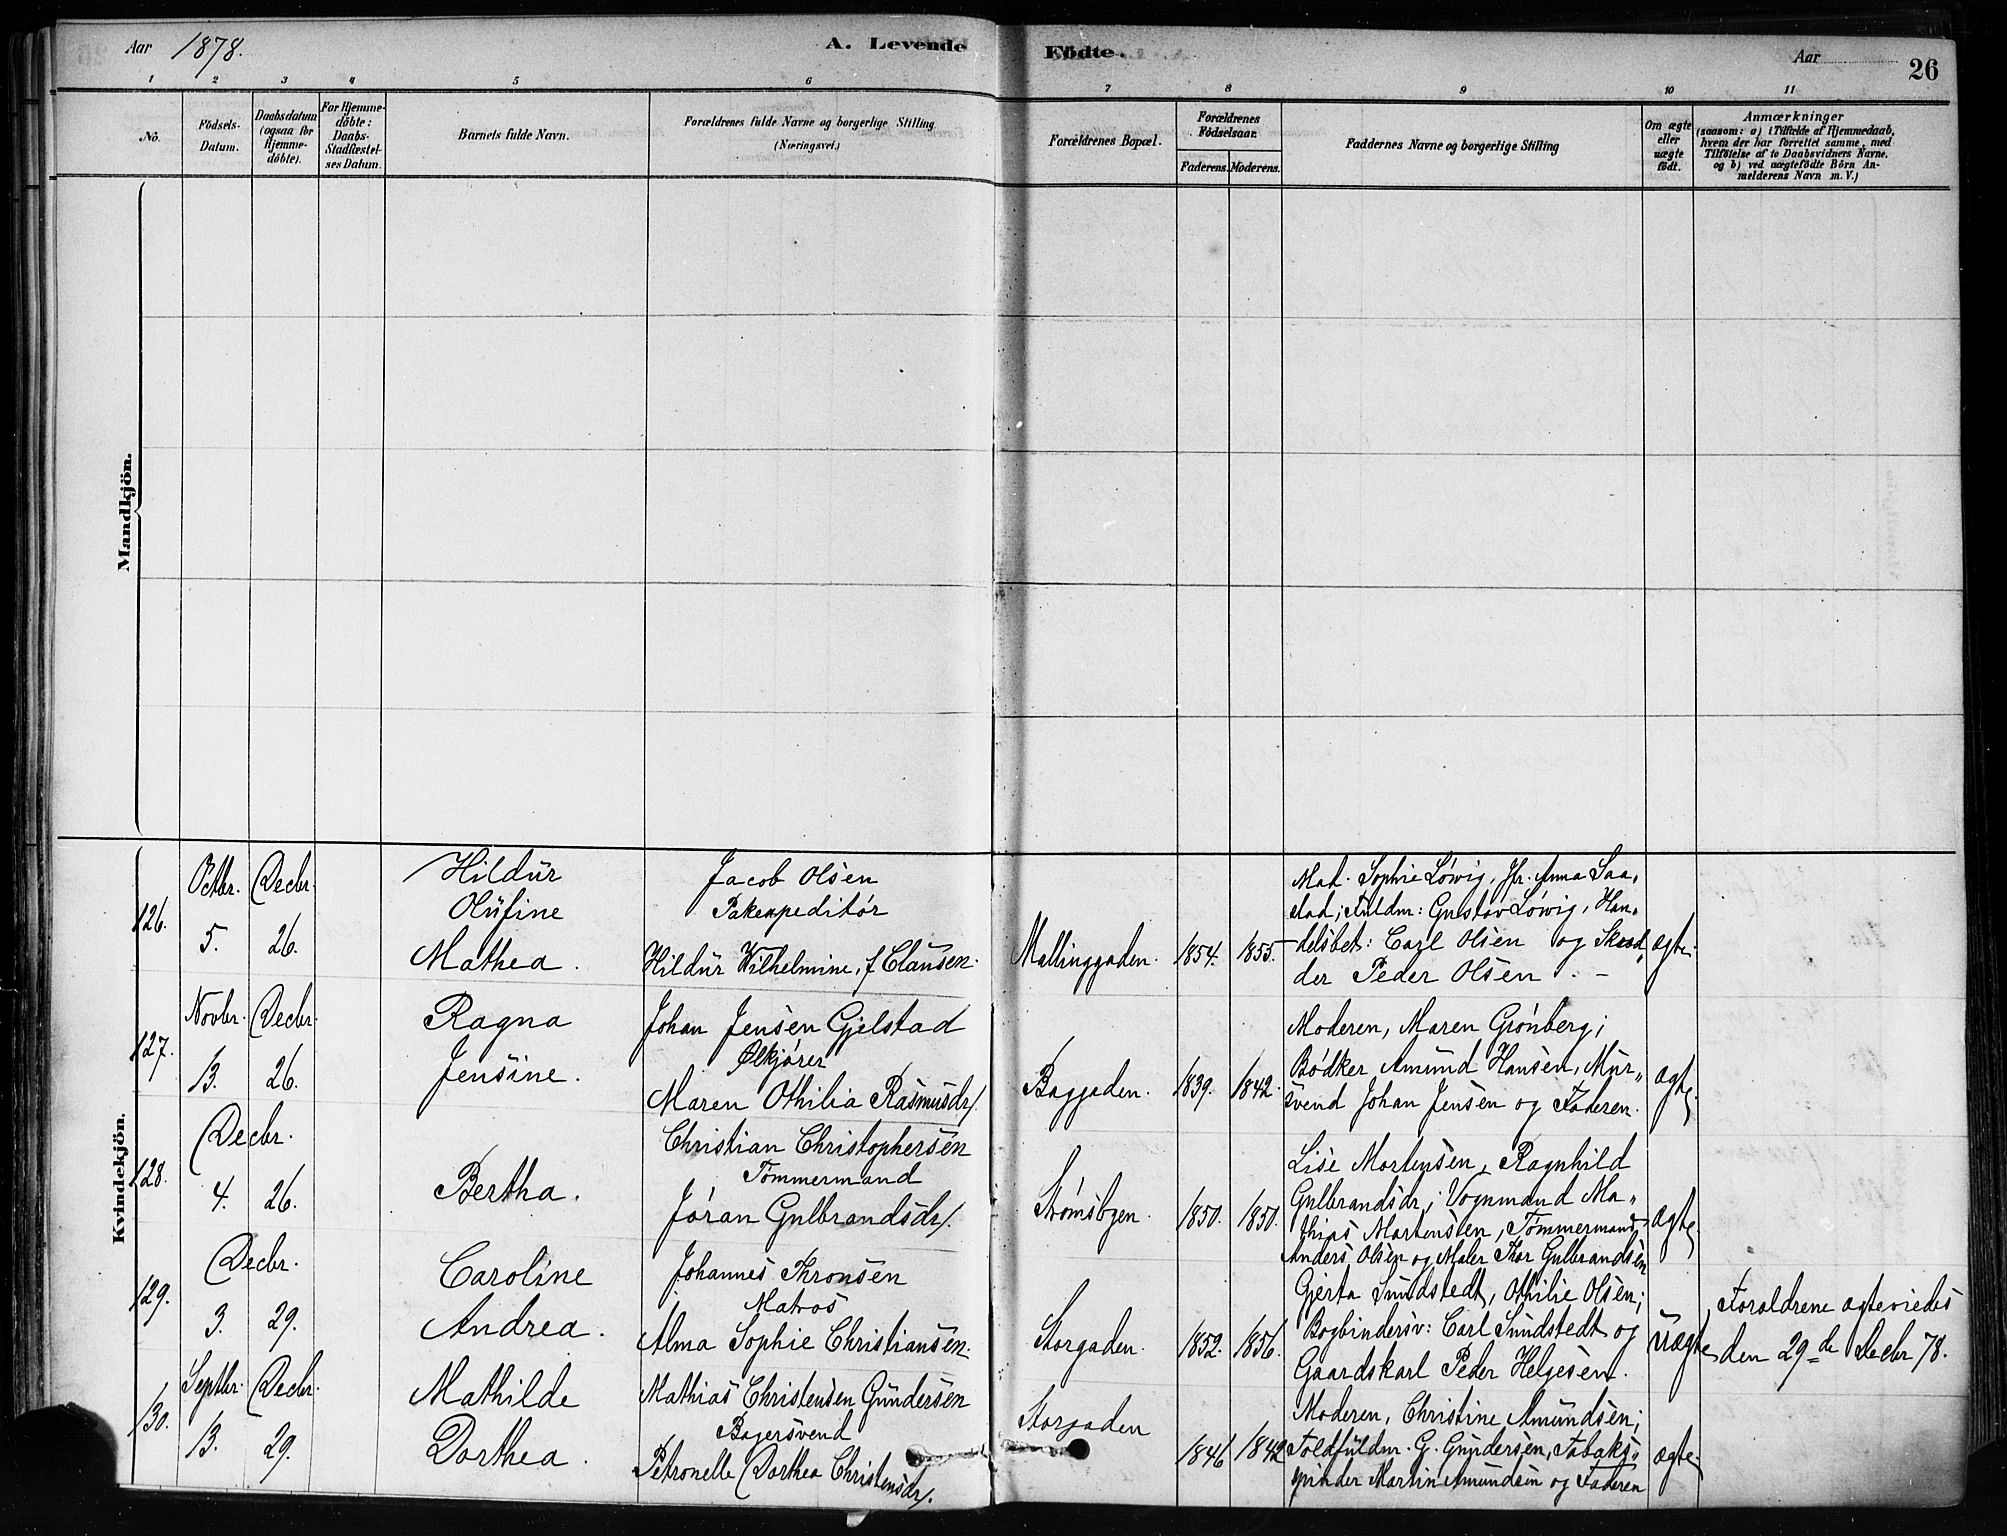 Aar 1878.
A. Levende Födte.
Aar
26
1 2 3 4 5 6 7 8 9 10 11
No.
Födsels-Datum.
Daabsdatum (ogsaa for Hjemme-döbte).
For Hjemme-döbte: Daabs-Stadfæstel-ses Datum.
Barnets fulde Navn.
Forældrenes fulde Navne og borgerlige Stilling
(Næringsvei.)
Forældrenes Bopæl.
Forældrenes Födselsaar.
Faderens. Moderens.
Faddernes Navne og borgerlige Stilling
Om ægte eller uægte födt.
Anmærkninger
(saasom: a) i Tilfælde af Hjemmedaab,
hvem der har forrettet samme, med
Tilföielse af to Daabsvidners Navne,
og b) ved uægtefödte Börn An-
melderens Navn m. V.)
Mandkjön.
Kvindekjön.
126.
Octbr. 5.
Decbr. 26.
Hildur
Olufine
Mathea.
Jacob Olsen
Pakexpeditør
Hildur Wilhelmine, f Clausen.
Mallinggaden.
1854. 1855.
Mad. Sophie Löwig, Jfr. Anna Saa„
stad; Fuldm: Gustav Löwig, Han„
delsbet: Carl Olsen og Skræd„
der Peder Olsen. –
ægte.
127.
Novbr. 13.
Decbr. 26.
Ragna
Jensine.
Johan Jensen Gjelstad
Ølkjører
Maren Othilia Rasmusdr/.
Baggaden.
1839. 1842.
Moderen, Maren Grönberg;
Bödker Amund Hansen, Mur„
svend Johan Jensen og Faderen.
ægte.
128.
Decbr. 4. 26.
Bertha.
Christian Christophersen
Tömmermand
Jöran Gulbrandsdr/.
Strömsøgen.
1850. 1850.
Lise Mortensen, Ragnhild
Gulbrandsdr; Vognmand Ma„
thias Martensen, Tömmermand
Anders Olsen og Maler Thor Gulbrandsen
ægte.
129.
Decbr. 3. 29.
Caroline
Andrea.
Johannes Thronsen
Matros
Alma Sophie Christiansen.
Storgaden.
1852. 1856.
Gjerta Sundstedt, Othilie Olsen;
Bogbindersv: Carl Sundstedt og
Gaardskarl Peder Helgesen.
uægte
Foraldrene ægteviedes
den 29de Decbr 78.
130.
Septbr. 13.
Decbr. 29.
Mathilde
Dorthea.
Mathias Christensen Gundersen
Bagersvend
Petronelle Dorthea Christensdr/.
Storgaden
1846 1842
Moderen, Christine Amundsen;
Toldfuldm. G. Gundersen, Tobaks„
spinder Martin Amundsen og Faderen
ægte.